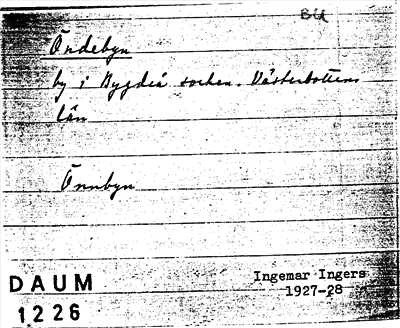 BU
Åndebyn
by i Bygdeå socken. Västerbottens
län
Ånnbyn
DAUM
1226
Ingemar Ingers
1927-28